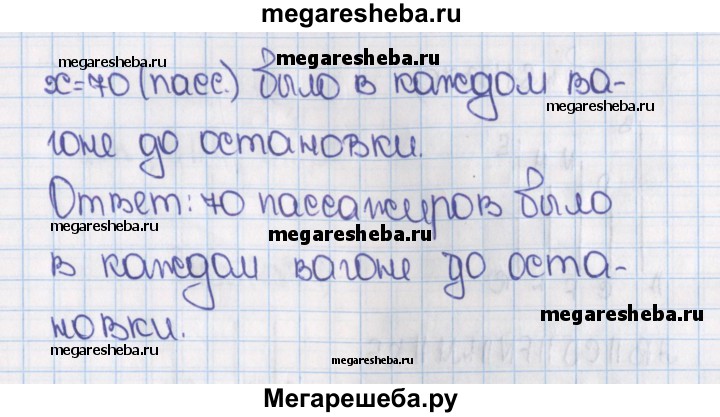 megaresheba.ru
megaresheba.ru
megaresheba.ru
x=70 (пасс.) было в каждом ва-
megaresheba.ru
гоне до остановки.
Ответ: 70 пассажиров было
megaresheba.ru
в каждом вагоне до оста-
megaresheba.ru
новки.
megaresheba.ru
megaresheba.ru
Мегарешеба.ру